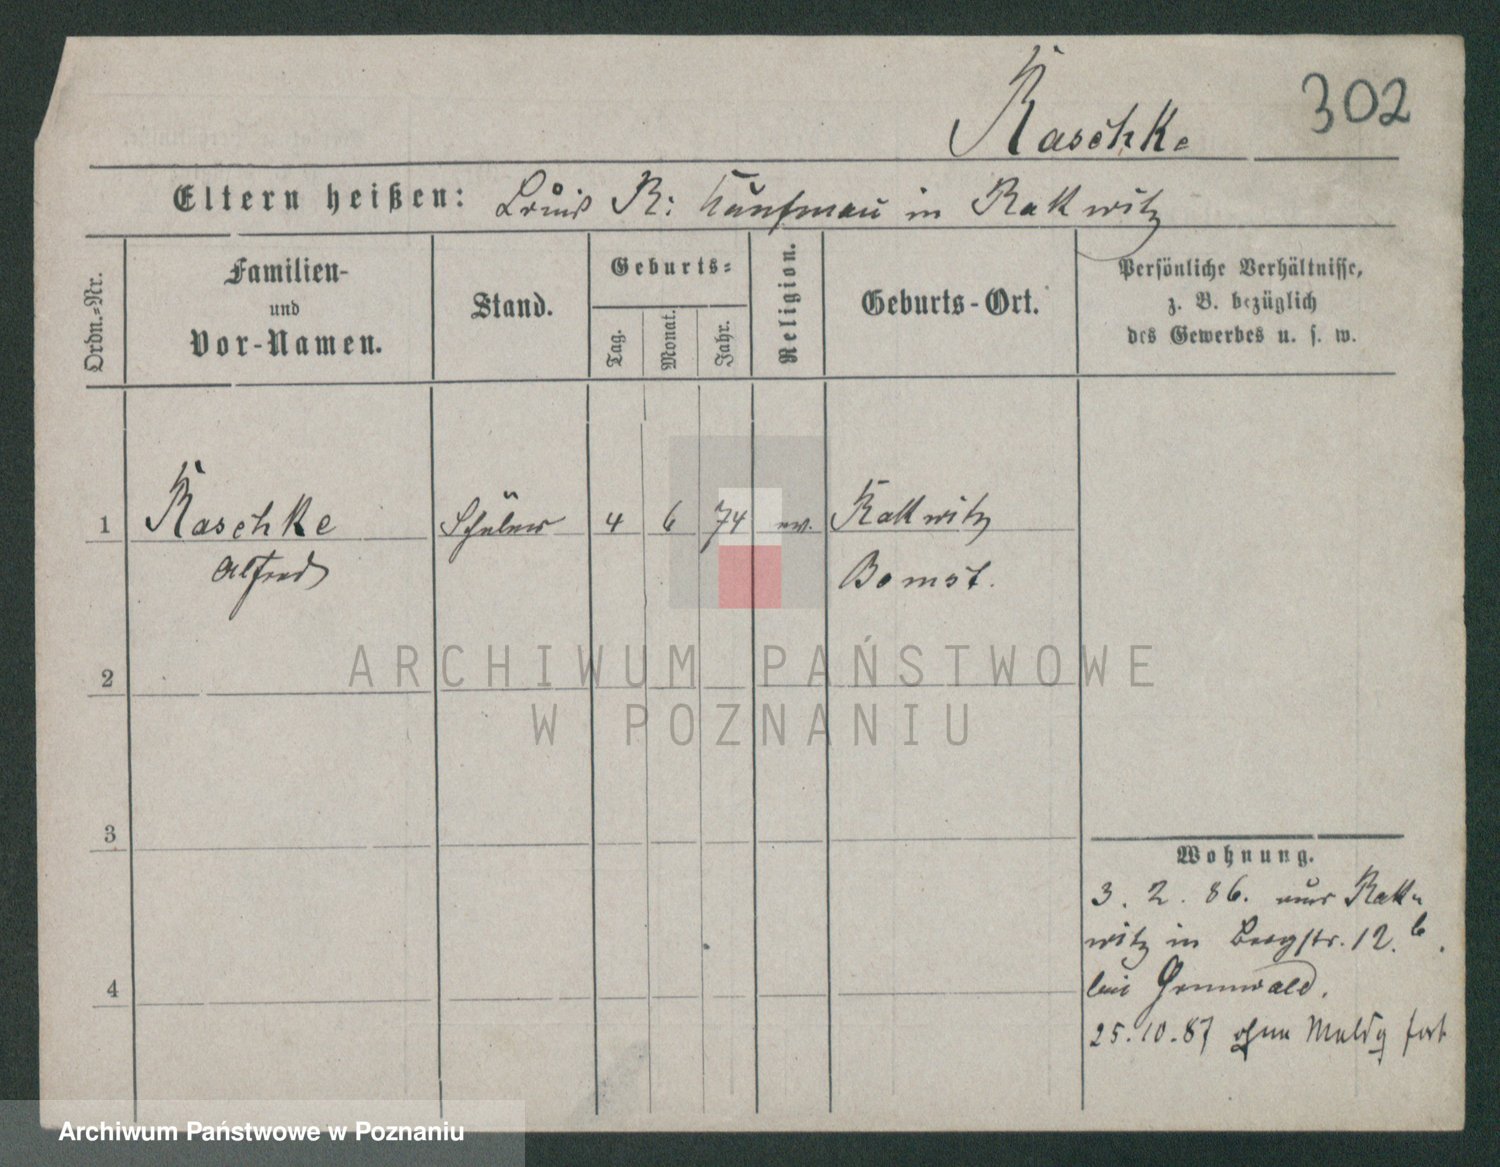 302
Raschke
Eltern heißen: Louis R: Kaufmann in Rakwitz
Ordn.-Nr.
Familien-
und
Vor-Namen.
Stand.
Geburts-
Tag.
Monat.
Jahr.
Religion.
Geburts-Ort.
Persönliche Verhältnisse,
z. B. bezüglich
des Gewerbes u. s. w.
1 Raschke Schüler 4 6 74 ev. Rakwitz
Alfred Bomst.
2
3
4
Wohnung.
3. 2. 86. aus Rak-
witz in Bergstr. 12.b.
bei Grunwald.
25.10.87 ohne Meldg fort
ARCHIWUM PAŃSTWOWE
W POZNANIU
Archiwum Państwowe w Poznaniu